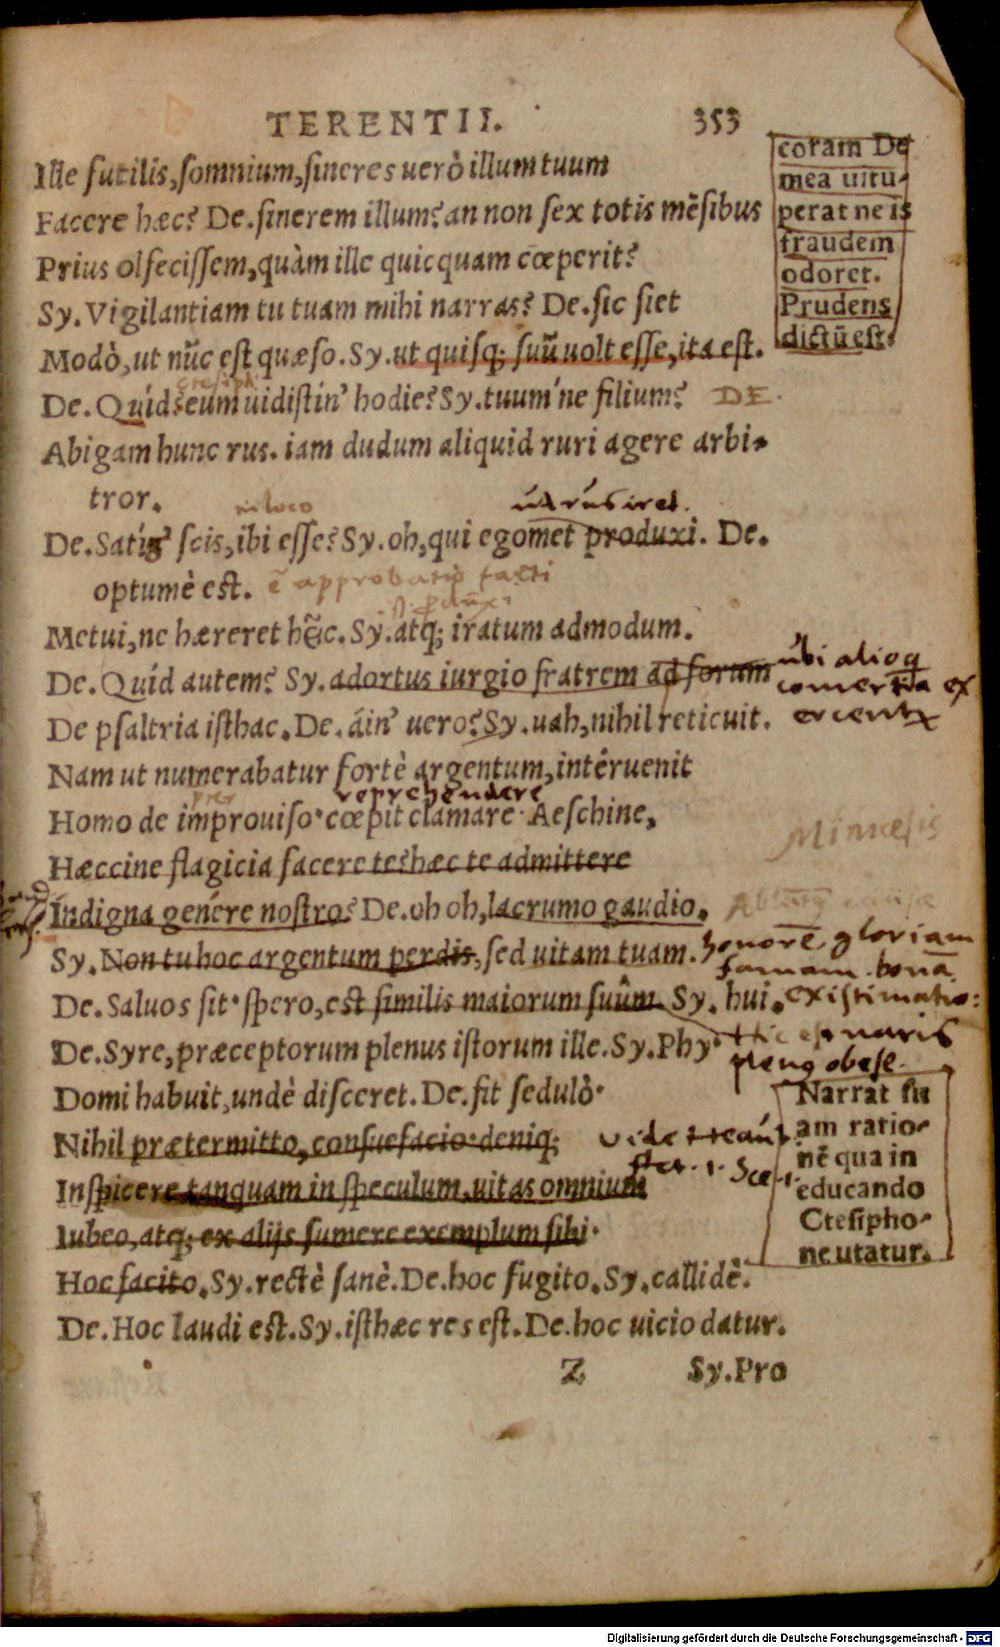 TERENTII. 353
Ille futilis, somnium, sineres uerò illum tuum
Facere hæc? De. sinerem illum? an non sex totis mẽsibus
Prius olfecissem, quàm ille quicquam cœperit?
Sy. Vigilantiam tu tuam mihi narras? De. sic siet
Modò, ut nũc est quæso. Sy. ut quisq; suũ uolt esse, ita est.
De. Quid? eum uidistin' hodie? Sy. tuum'ne filium? DE.
Abigam hunc rus. iam dudum aliquid ruri agere arbi-
tror.
in loco
ut rus iret.
De. Satin' scis, ibi esse? Sy. oh, qui egomet produxi. De.
optumè est. ẽ approbatio facti
Metui, ne hæreret hĩc. Sy. atq; iratum admodum.
De. Quid autem? Sy. adortus iurgio fratrem ad forum
De psaltria isthac. De. áin' uero? Sy. uah, nihil reticuit.
Nam ut numerabatur fortè argentum, interuenit
reprehendere
Homo de improuiso· cœpit clamare· Aeschine,
Hæccine flagicia facere te? hæc te admittere
Indigna genere nostro? De. oh oh, lacrumo gaudio.
Sy. Non tu hoc argentum perdis, sed uitam tuam.
De. Saluos sit· spero, est similis maiorum suûm. Sy. hui.
De. Syre, præceptorum plenus istorum ille. Sy. Phy·
Domi habuit, undè disceret. De. fit sedulò·
Nihil prætermitto, consuefacio· deniq;
Inspicere tanquam in speculum, uitas omnium
Iubeo, atq; ex alijs sumere exemplum sibi·
Hoc facito. Sy. rectè sanè. De. hoc fugito. Sy. callidè.
De. Hoc laudi est. Sy. isthæc res est. De. hoc uicio datur.
Z Sy. Pro
coram De
mea uitu-
perat ne is
fraudem
odoret.
Prudens
dictũ est.
ubi alioq
comertia ex
ercentur
honorẽ gloriam
famam bonã
existimatio:
naris
obese.
Narrat su
am ratio-
nẽ qua in
educando
Ctesipho-
ne utatur.
Digitalisierung gefördert durch die Deutsche Forschungsgemeinschaft - DFG